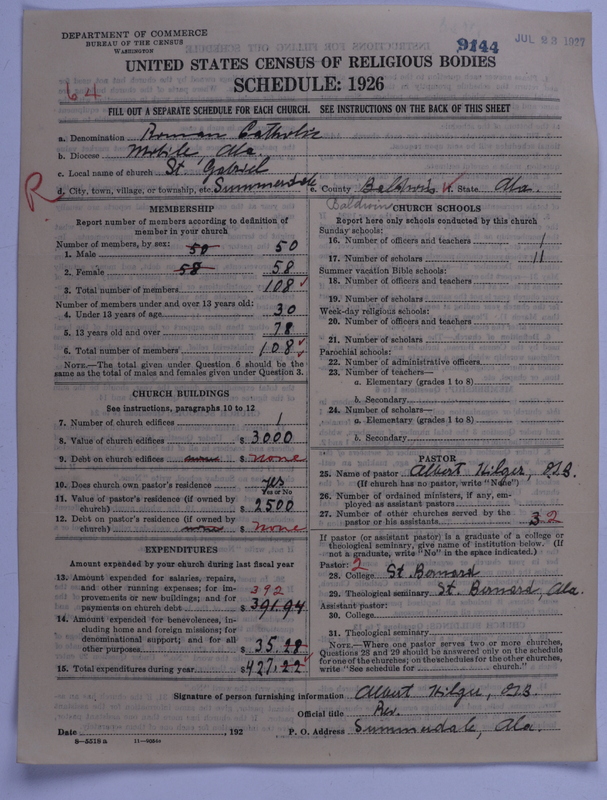 DEPARTMENT OF COMMERCE
BUREAU OF THE CENSUS
WASHINGTON
9144
JUL 23 1927
UNITED STATES CENSUS OF RELIGIOUS BODIES
SCHEDULE: 1926
64
FILL OUT A SEPARATE SCHEDULE FOR EACH CHURCH. SEE INSTRUCTIONS ON THE BACK OF THIS SHEET
a. Denomination Roman Catholic
b. Diocese Mobile, Ala.
c. Local name of church St. Gabriel
R
d. City, town, village, or township, etc. Summerdale e. County Baldwin f. State Ala.
Baldwin
MEMBERSHIP
Report number of members according to definition of
member in your church
Number of members, by sex:
1. Male 50 50
2. Female 58 58
3. Total number of members 108
Number of members under and over 13 years old:
4. Under 13 years of age 30
5. 13 years old and over 78
6. Total number of members 108
NOTE.—The total given under Question 6 should be the
same as the total of males and females given under Question 3.
CHURCH BUILDINGS
See instructions, paragraphs 10 to 12
7. Number of church edifices 1
8. Value of church edifices $ 3000
9. Debt on church edifices none $ none
10. Does church own pastor's residence yes
Yes or No
11. Value of pastor's residence (if owned by
church) $ 2500
12. Debt on pastor's residence (if owned by
church) none $ none
EXPENDITURES
Amount expended by your church during last fiscal year
13. Amount expended for salaries, repairs,
and other running expenses; for im-
provements or new buildings; and for
payments on church debt 392 $ 391.94
14. Amount expended for benevolences, in-
cluding home and foreign missions; for
denominational support; and for all
other purposes $ 35.28
15. Total expenditures during year $ 427.22
CHURCH SCHOOLS
Report here only schools conducted by this church
Sunday schools:
16. Number of officers and teachers 1
17. Number of scholars 11
Summer vacation Bible schools:
18. Number of officers and teachers
19. Number of scholars
Week-day religious schools:
20. Number of officers and teachers
21. Number of scholars
Parochial schools:
22. Number of administrative officers
23. Number of teachers—
a. Elementary (grades 1 to 8)
b. Secondary
24. Number of scholars—
a. Elementary (grades 1 to 8)
b. Secondary
PASTOR
25. Name of pastor Albert Hilger, O.S.B.
(If church has no pastor, write "None")
26. Number of ordained ministers, if any, em-
ployed as assistant pastors
27. Number of other churches served by the
pastor or his assistants 3 2
If pastor (or assistant pastor) is a graduate of a college or
theological seminary, give name of institution below. (If
not a graduate, write "No" in the space indicated.)
Pastor: 2
28. College St Bernard
29. Theological seminary St. Bernard, Ala.
Assistant pastor:
30. College
31. Theological seminary
NOTE.—Where one pastor serves two or more churches,
Questions 28 and 29 should be answered only on the schedule
for one of the churches; on the schedules for the other churches,
write "See schedule for church."
Signature of person furnishing information Albert Hilger, O.S.B.
Official title Rev.
Date , 192 P. O. Address Summerdale, Ala.
8—5518 a